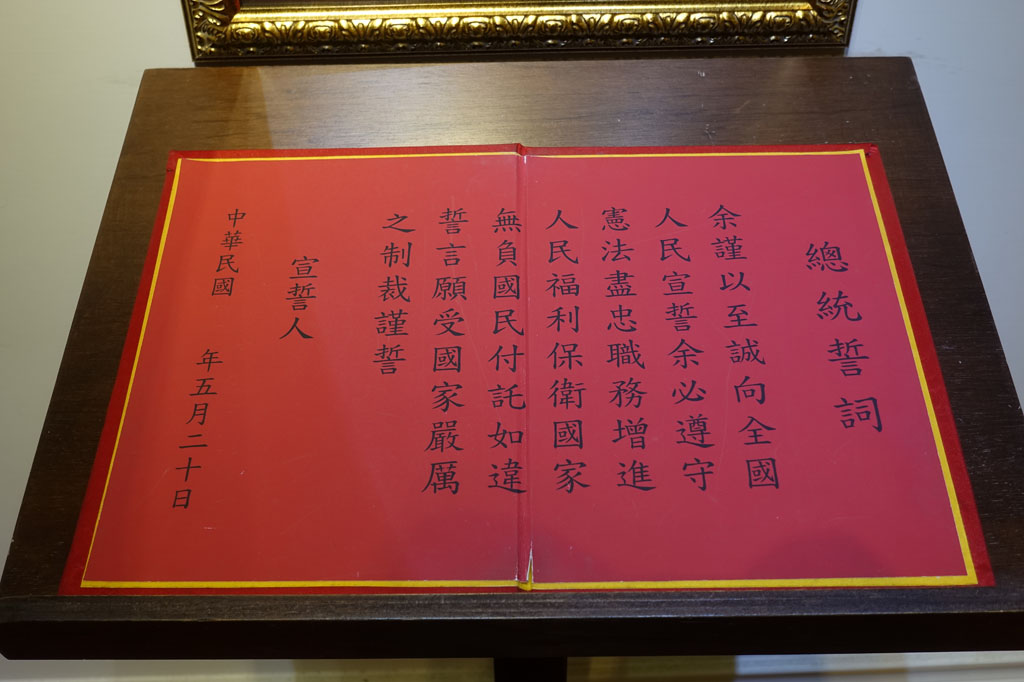 總統誓詞
余謹以至誠向全國
人民宣誓余必遵守
憲法盡忠職務增進
人民福利保衛國家
無負國民付託如違
誓言願受國家嚴厲
之制裁謹誓
宣誓人
中華民國 年五月二十日